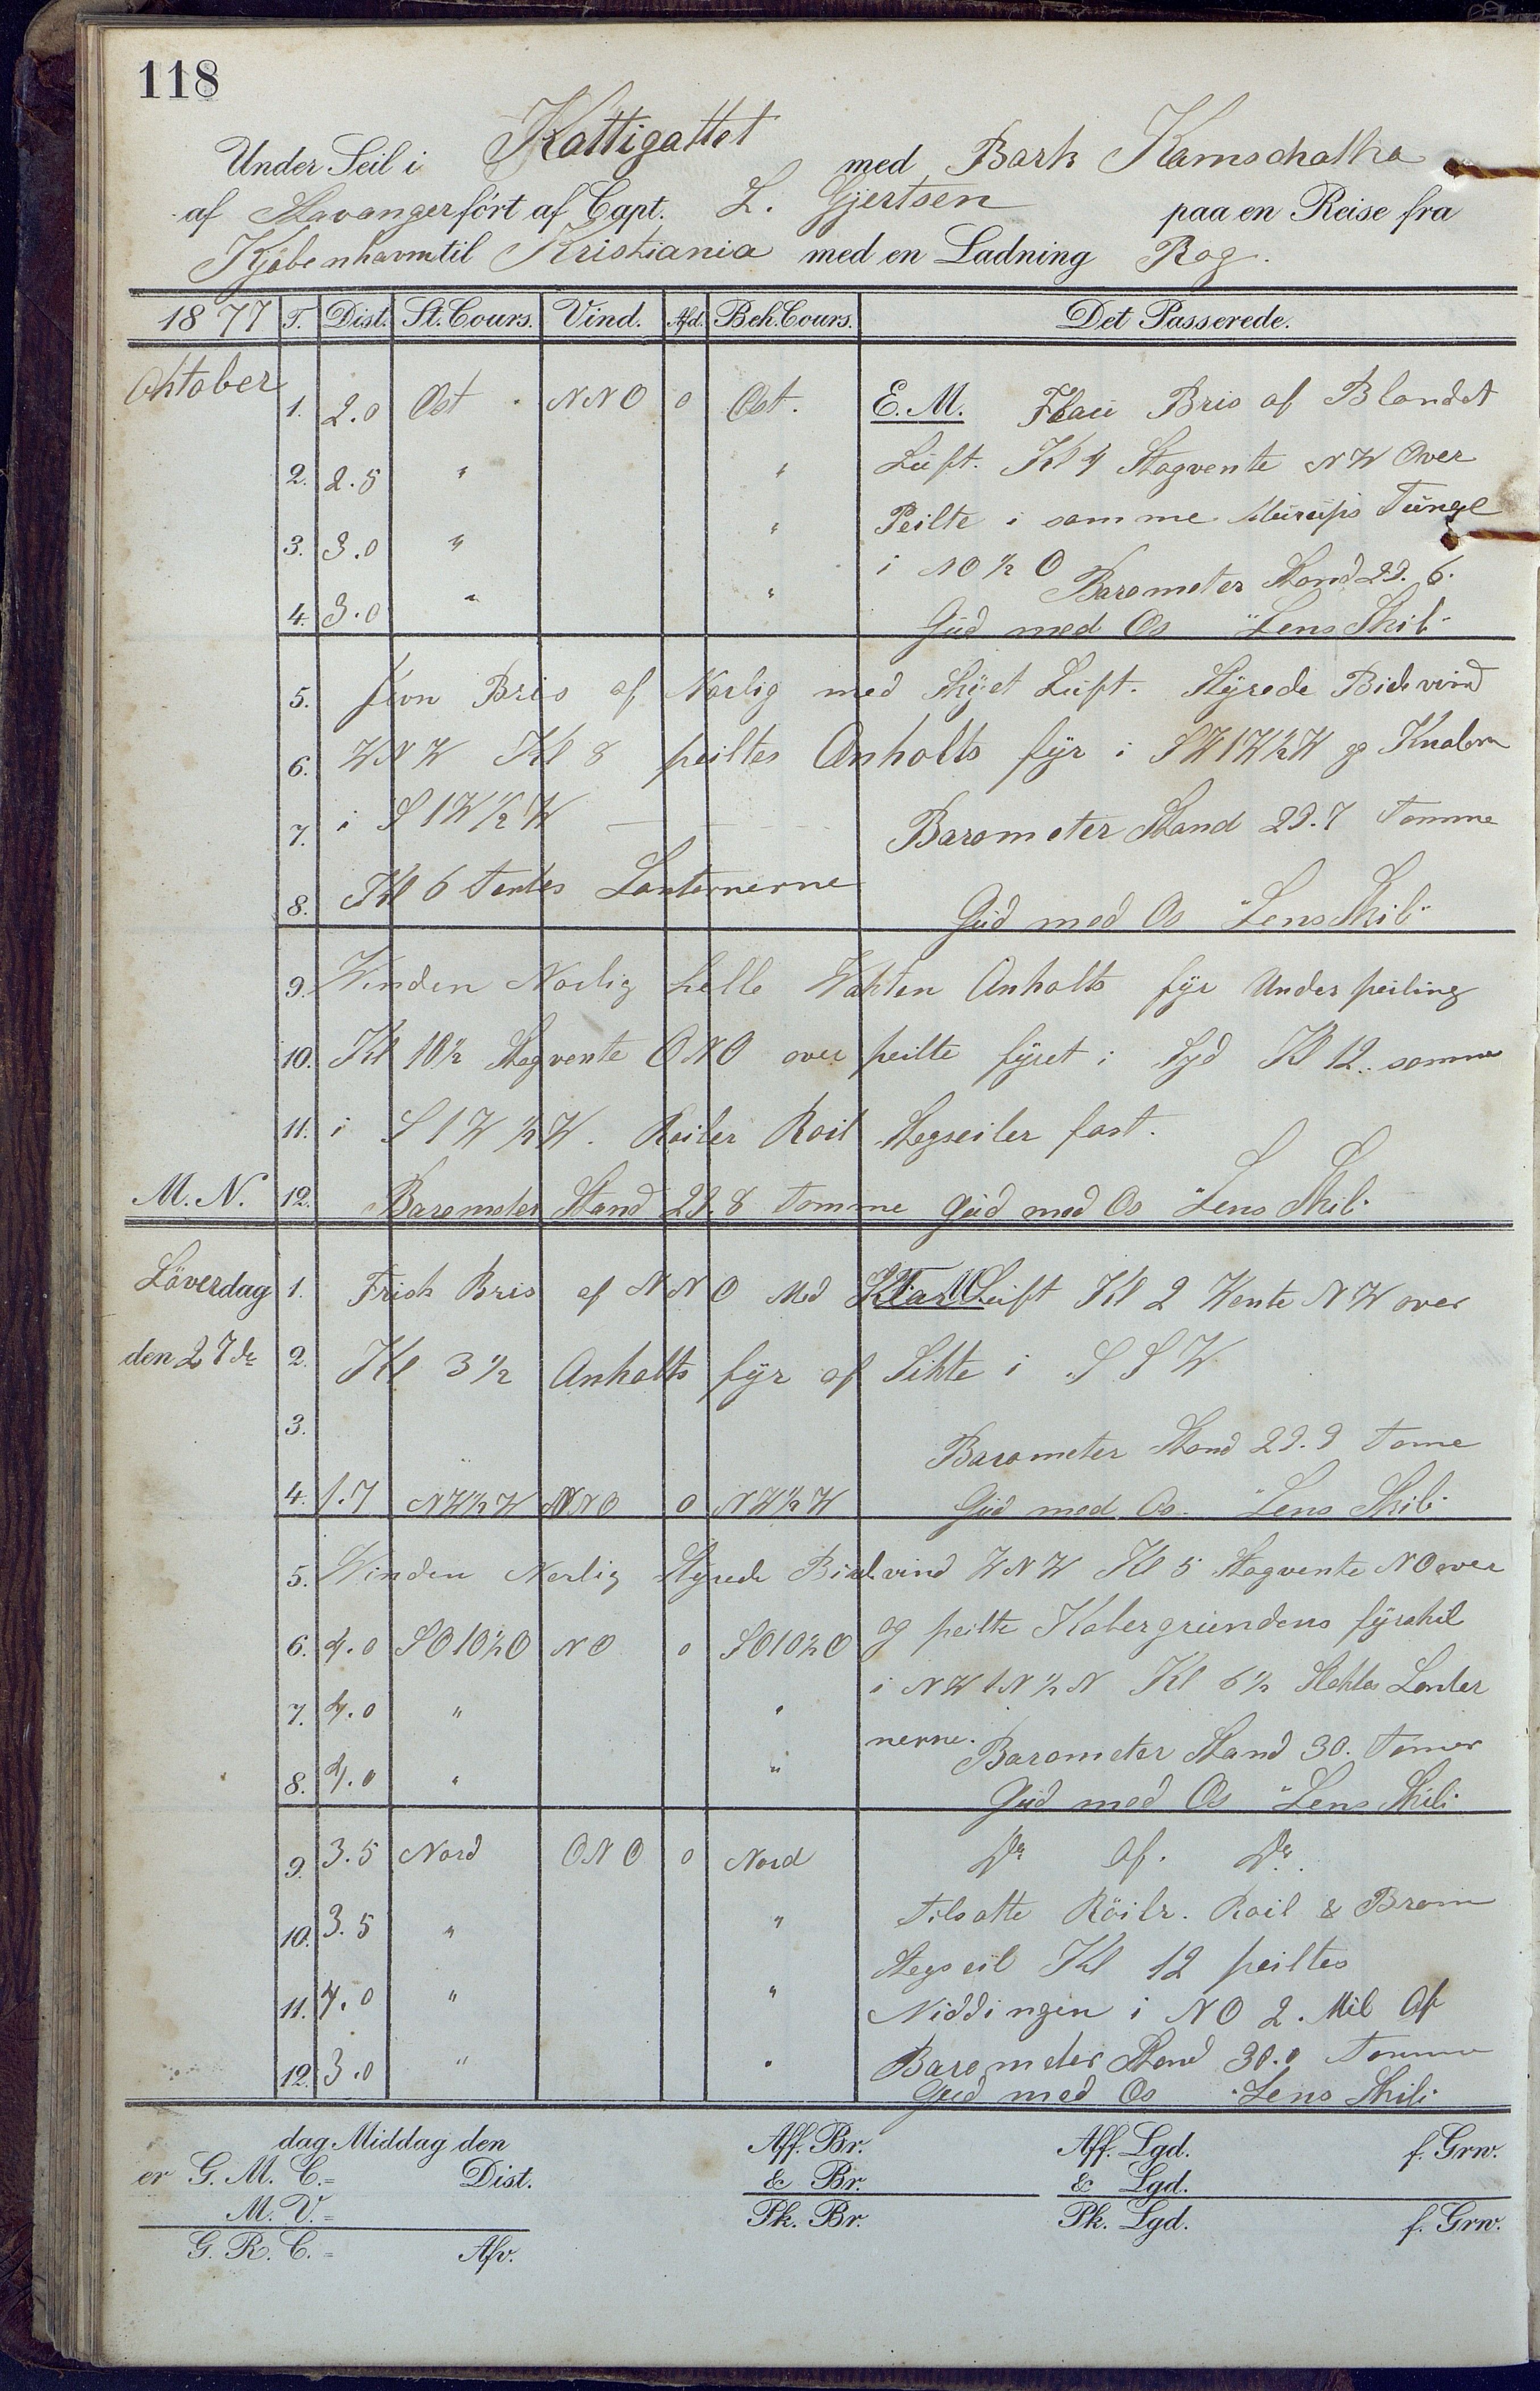 118
Under Seil i Kattigattet med Bark Kamschatka
af Stavanger fört af Capt. L. Gjertsen paa en Reise fra
Kjöbenhavn til Kristiania med en Ladning Rog.
1877 T. Dist. St. Cours. Vind. Afd. Beh. Cours. Det Passerede.
Oktober 1. 2.0 Ost NNO 0 Ost. E. M. Flau Bris af Blandet
2. 2.5 " " Luft. Kl 4 Stagvente NW Over
3. 3.0 " " Peilte i samme Murups Tunge
i NO ½ O Barometer Stand 29. 6.
4. 3.0 " " Gud med Os "Lens Skib"
5. Jevn Bris af Norlig med Skyet Luft. Styrede Bidevind
6. WNW Kl 8 peiltes Anholts fyr i SW1W½W og Knoben
7. i S1W½W Barometer Stand 29.7 Tomme
8. Kl 6 Tentes Lanternerne Gud med Os "Lens Skib"
9. Vinden Norlig hele Vakten Anholts fyr Under peiling
10. Kl 10½ Stagvente ONO over peilte fyret i Syd Kl 12. samme
11. i S1W½W. Roiler Roil Stegseiler fast.
M. N. 12. Barometer Stand 29. 8 Tomme Gud med Os "Lens Skib"
Löverdag 1. Frisk Bris af NNO Med Klar Luft Kl 2 Vente NW over
den 27de 2. Kl 3½ Anholts fyr af Sikte i SSW
3. Barometer Stand 29.9 Tome
4. 1.7 NW½W NNO 0 NW½W Gud med Os "Lens Skib"
5. Vinden Norlig Styrede Bidevind WNW Kl 5 Stagvente NO over
6. 4.0 SO1O½O NO 0 SO1O½O og peilte Kobergrundens fyrskib
7. 4.0 " " i NW1N½N Kl 6½ Slektes Lanter
nerne. Barometer Stand 30. Tomer
8. 4.0 " " Gud med Os "Lens Skib"
9. 3.5 Nord ONO 0 Nord Do Af. Do.
10. 3.5 " " Tilsatte Röilr. Roil & Bram
Stegseil Kl 12 peiltes
11. 4.0 " " Niddingen i NO 2. Mil Af
12. 3.0 " " Barometer Stand 30.0 Tomme
Gud med Os "Lens Skib"
dag Middag den Aff. Br. Aff. Lgd. f. Grw.
er G. M. C.= Dist. & Br. & Lgd.
M. V.= Pk. Br. Pk. Lgd. f. Grw.
G. R. C.= Afv.